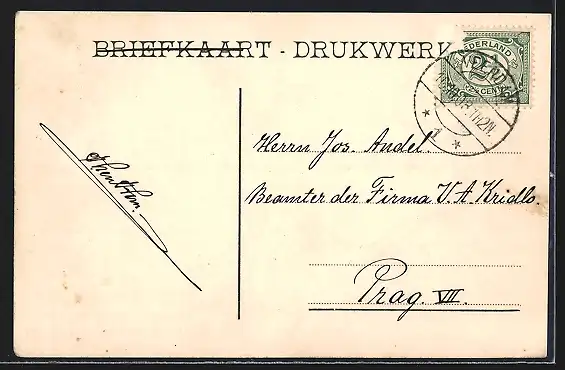 BRIEFKAART - DRUKWERK
NEDERLAND
2½
2½ CENT
Herrn Jos. Andel.
Beamter der Firma V. A. Kridlo.
Prag. VII.